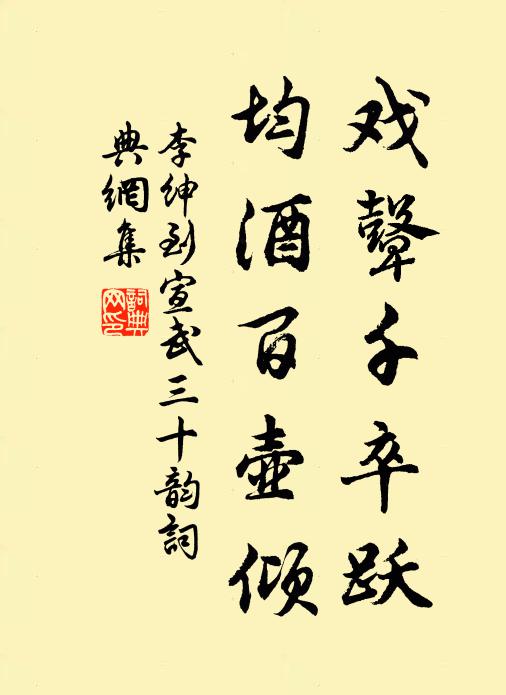 戏鼙千卒跃
均酒百壺倾
李绅到宣武三十韵詞
典網集
詞典
网印